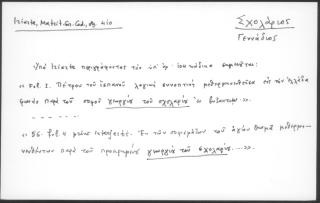 Iriarte, Matrit. Gr. Cod., σ. 410
Σχολάριος
Γεννάδιος
Ὑπὸ Iriarte περιγράφονται τὸν ὑπ' ἀρ. κώδικα σημειοῦται:
«Fol. 1. Πέτρου τοῦ ἱσπανοῦ λογικὴ συνοπτικὴ μεθερμηνευθεῖσα εἰς τὴν ἑλλάδα
φωνὴν παρὰ τοῦ σοφοῦ γεωργίου τοῦ σχολαρίου βυζαντίου».
- - - - - -
«56. fol. Ἐκ τῶν τοῦ ἁγίου Θωμᾶ μεθερμη-
νευθέντων παρὰ τοῦ προειρημένου γεωργίου τοῦ σχολαρίου...»